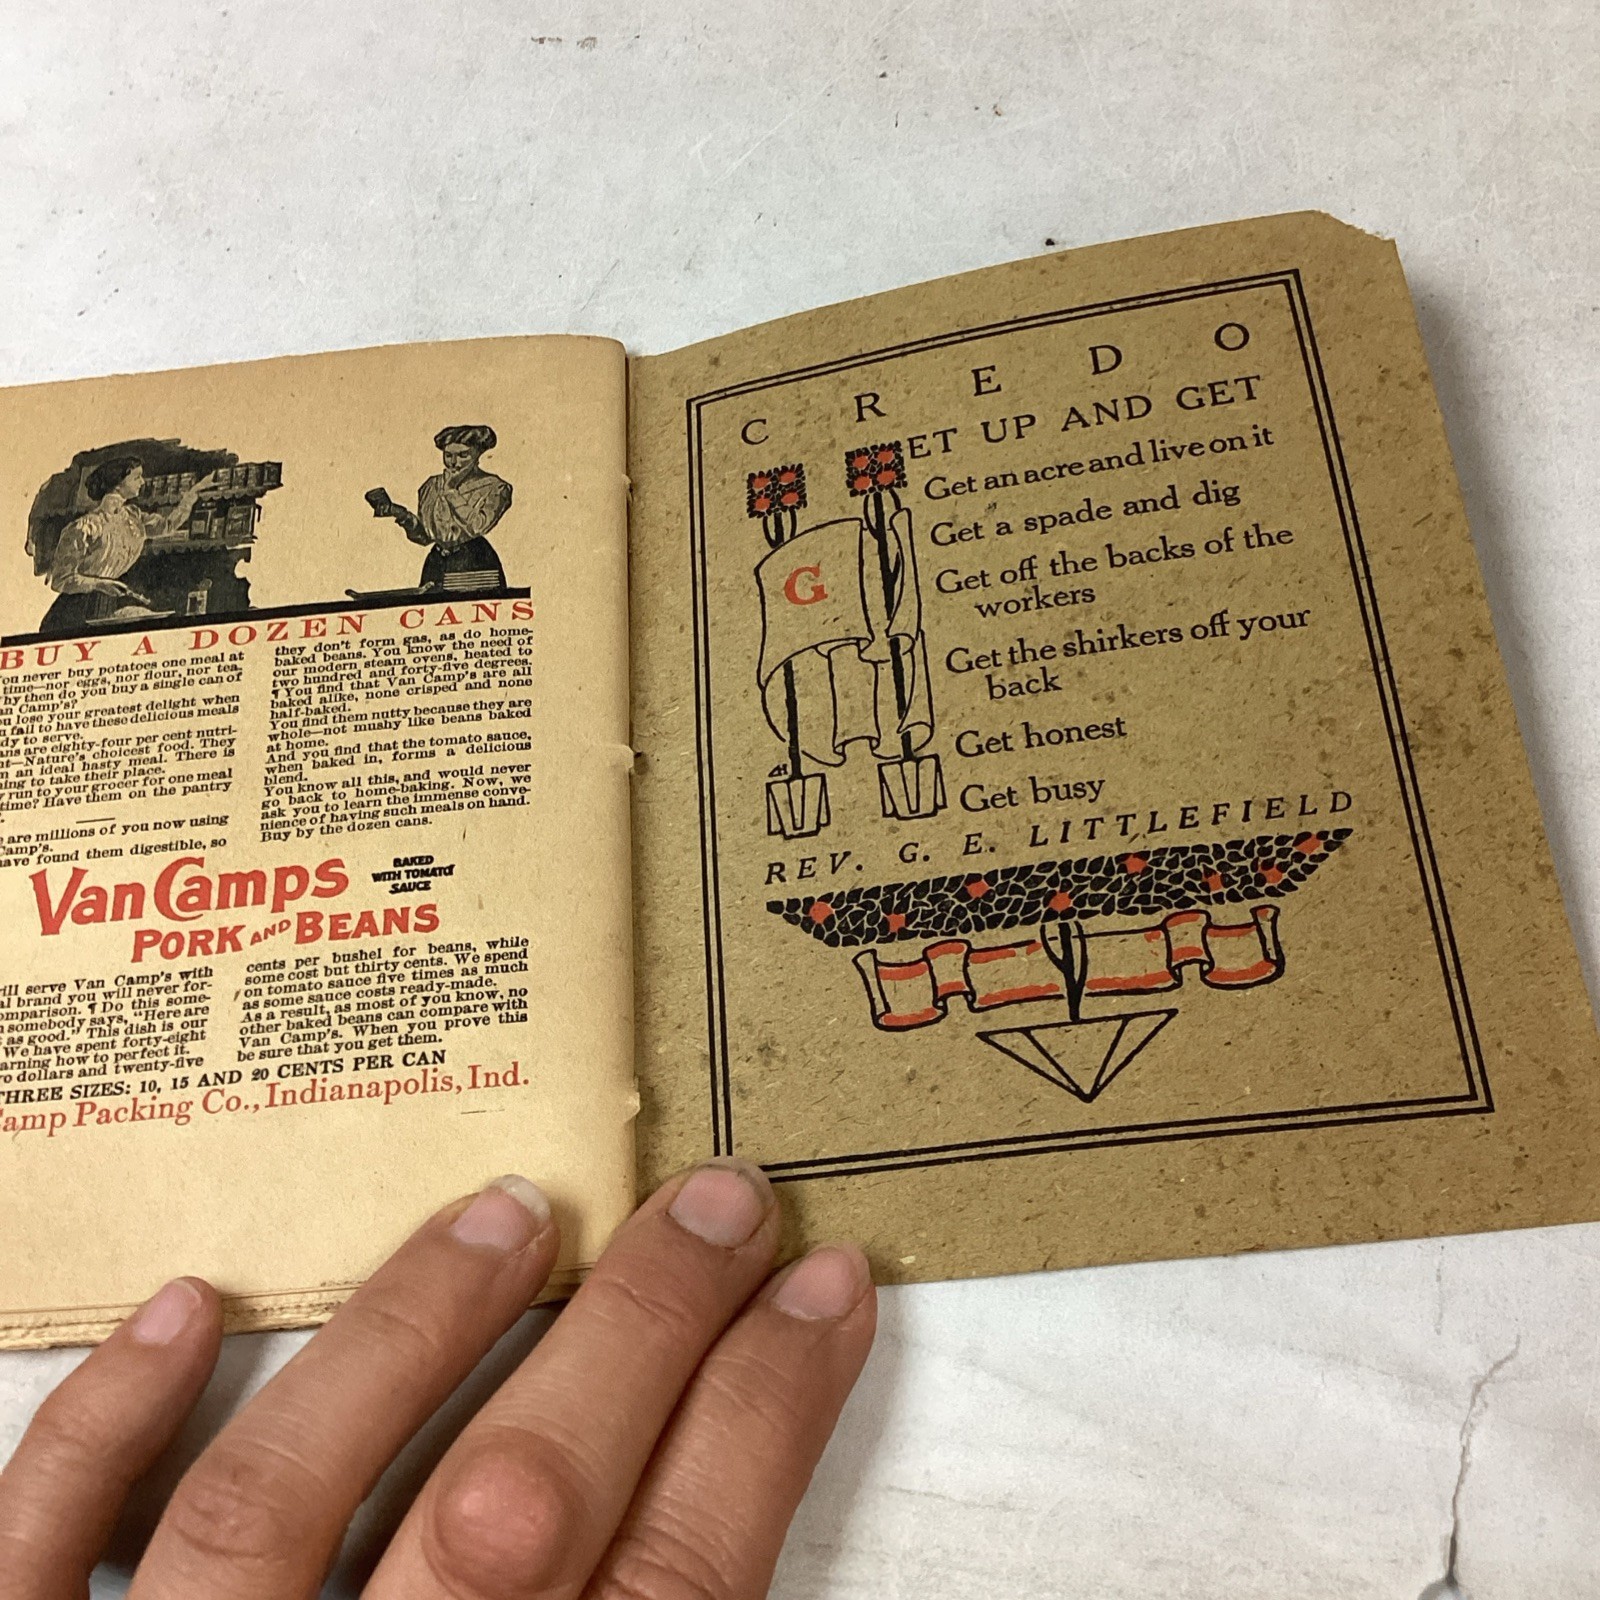 BUY A DOZEN CANS
ou never buy potatoes one meal at
time—nor eggs, nor flour, nor tea.
hy then do you buy a single can of
an Camp's?
u lose your greatest delight when
u fail to have these delicious meals
dy to serve.
ans are eighty-four per cent nutri-
nt—Nature's choicest food. They
n an ideal hasty meal. There is
ing to take their place.
y run to your grocer for one meal
time? Have them on the pantry
e are millions of you now using
Camp's.
have found them digestible, so
they don't form gas, as do home-
baked beans. You know the need of
our modern steam ovens, heated to
two hundred and forty-five degrees.
¶ You find that Van Camp's are all
baked alike, none crisped and none
half-baked.
You find them nutty because they are
whole—not mushy like beans baked
at home.
And you find that the tomato sauce,
when baked in, forms a delicious
blend.
You know all this, and would never
go back to home-baking. Now, we
ask you to learn the immense conve-
nience of having such meals on hand.
Buy by the dozen cans.
Van Camps
BAKED
WITH TOMATO
SAUCE
PORK AND BEANS
ill serve Van Camp's with
al brand you will never for-
omparison. ¶ Do this some-
n somebody says, "Here are
as good." This dish is our
We have spent forty-eight
arning how to perfect it.
o dollars and twenty-five
cents per bushel for beans, while
some cost but thirty cents. We spend
on tomato sauce five times as much
as some sauce costs ready-made.
As a result, as most of you know, no
other baked beans can compare with
Van Camp's. When you prove this
be sure that you get them.
THREE SIZES: 10, 15 AND 20 CENTS PER CAN
Camp Packing Co., Indianapolis, Ind.
CREDO
G
ET UP AND GET
Get an acre and live on it
Get a spade and dig
Get off the backs of the
workers
Get the shirkers off your
back
Get honest
Get busy
REV. G. E. LITTLEFIELD